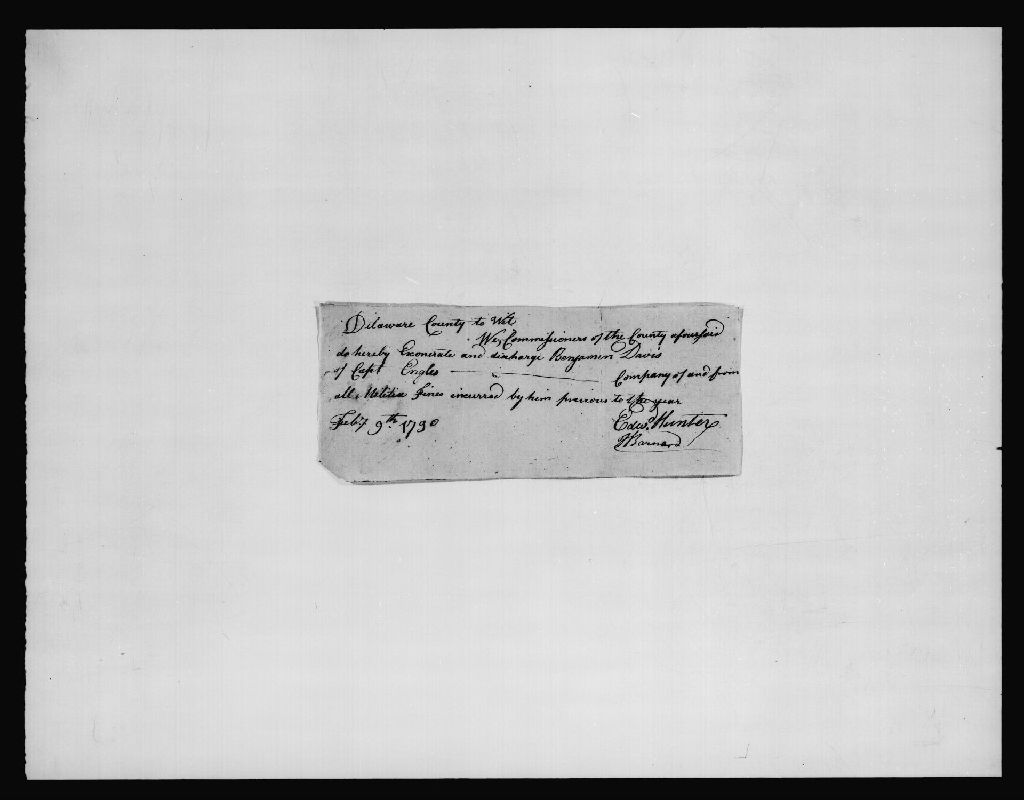 Delaware County to Wit
We, Commissioners of the County aforesaid
do hereby Exonerate and discharge Benjamin Davis
of Capt Engles Company of and from
all Militia Fines incurred by him previous to the year
Feby 9th 1790
Edwd. Hunter
J Barnard